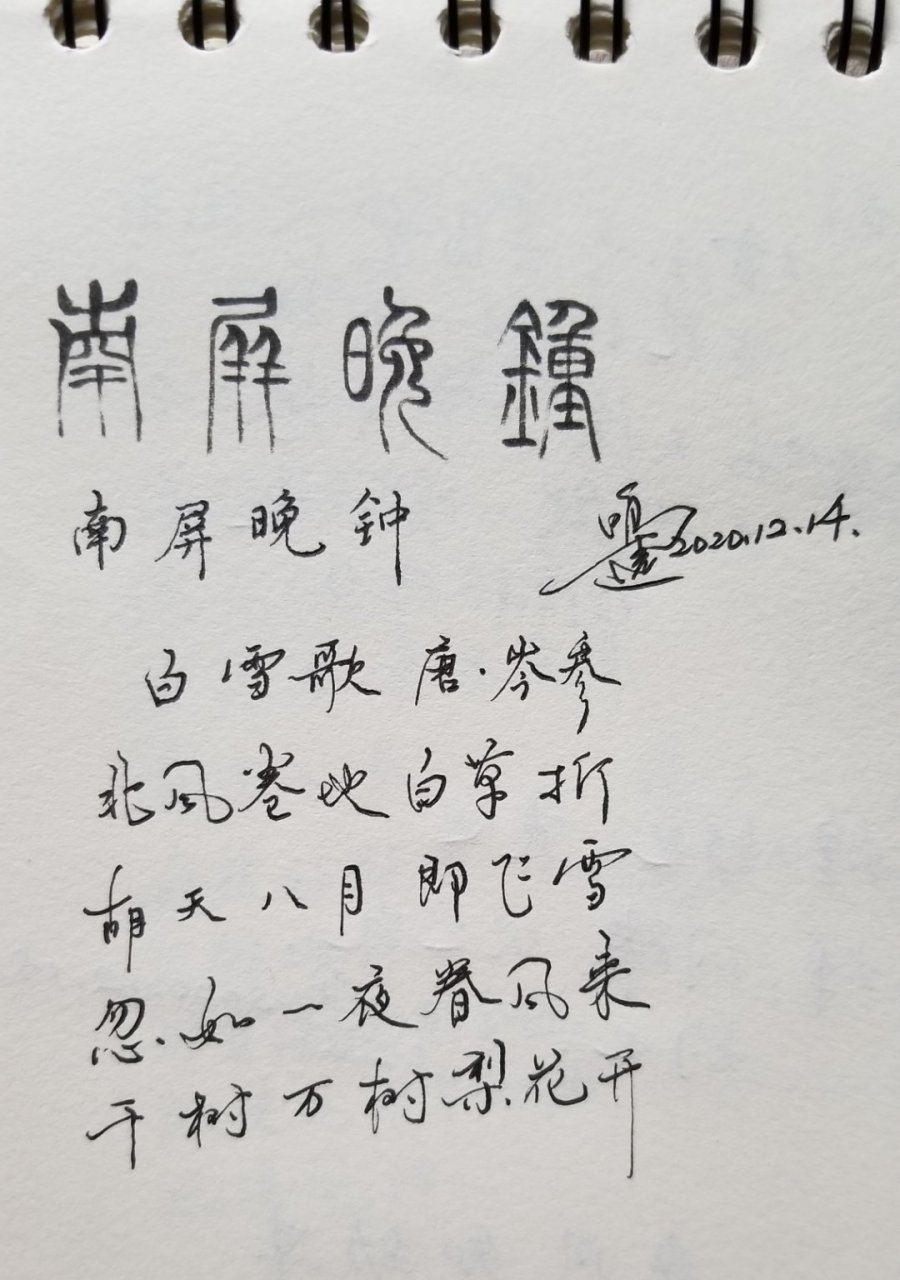 南屏晚鐘
南屏晚鈡 2020.12.14.
白雪歌 唐·岑参
北风卷地白草折
胡天八月即飞雪
忽如一夜春风来
千树万树梨花开